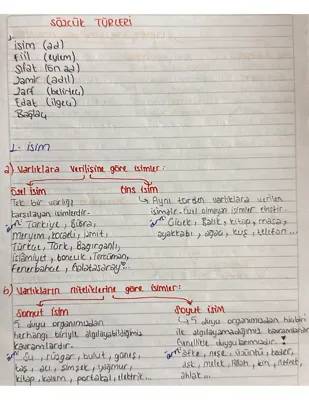 SÖZCÜK TÜRLERİ
isim (ad)
Fiil (eylem)
Sıfat (ön ad)
Zamir (adıl)
Zarf (belirteç)
Edat (ilgeç)
Bağlaç
1- İsim
a) Varlıklara Verilişine göre isimler:
Özel isim
Tek bir varlığı
karşılayan isimlerdir.
örn Türkiye, Kıbrıs,
Meryem, Kocaeli, İzmit,
Türkçe, Türk,
İslamiyet, Boncuk, Tercüman,
Fenerbahçe, Galatasaray
Cins isim
Aynı türden varlıklara verilen
isimdir. Özel olmayan isimler cinstir.
örn Çiçek, Balık, kitap, masa,
ayakkabı, ağaç, kuş, telefon...
b) Varlıkların niteliklerine göre isimler:
Somut isim
5 duyu organımızdan
herhangi biriyle algılayabildiğimiz
kavramlardır.
örn Su, rüzgar, bulut, güneş,
ses, acı, şimşek, yağmur,
kitap, kalem, portakal, elektrik...
Soyut isim
5 duyu organımızdan hiçbiri
ile algılayamadığımız kavramlardır.
Genellikle duygularımızdır.
örn öfke, neşe, üzüntü, keder,
aşk, melek, Allah, kin, nefret,
ahlak...